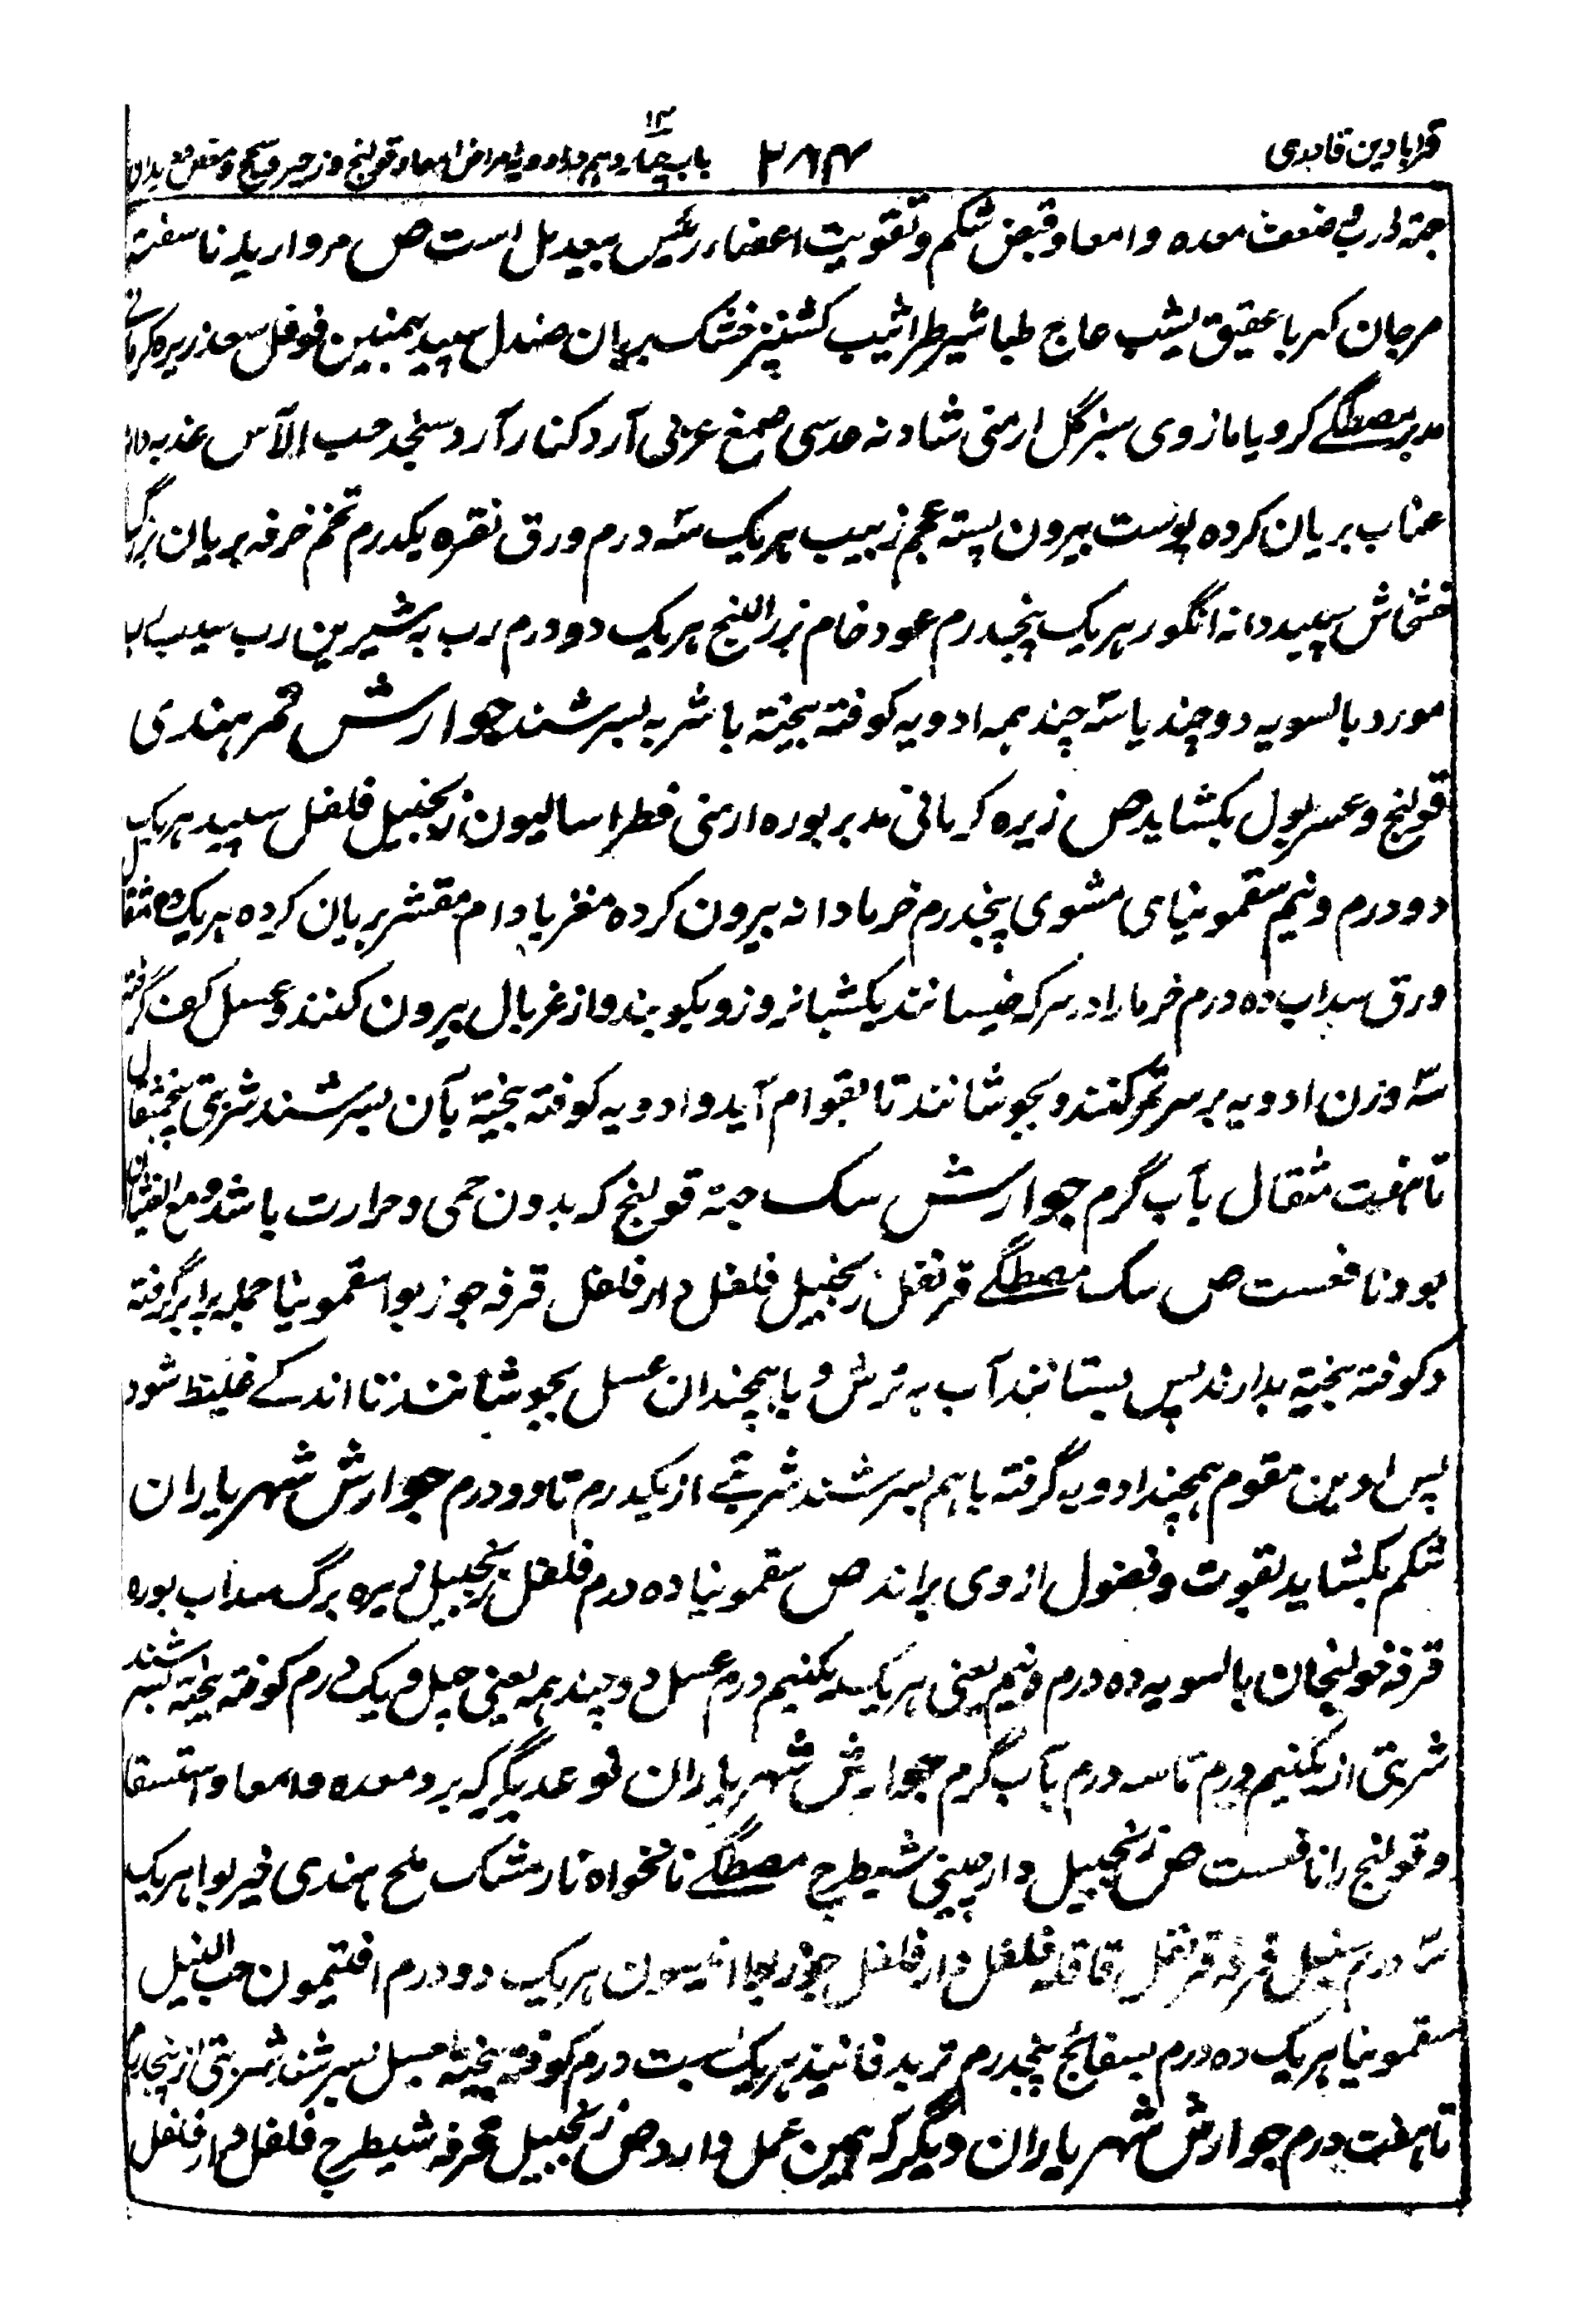 قرابادین قادری
۲۸۴
باب چهاردهم در ادویه امراض امعا و قولنج و زحیر و سحج و مغص
جهة ذرب و ضعف معده و امعا و قبض شکم و تقویت اعضاء رئیس بیبدیل است ص مروارید ناسفته
مرجان کهربا عقیق یشب عاج طباشیر طراثیث کشنیز خشک بریان صندل سپید بهمنین فوفل سعد زیره کرمانی
مدبر مصطگے کرویا مازوی سبز گل ارمنی شادنه عدسی صمغ عربی آرد کنار آرد سنجد حب الآس
عناب بریان کرده پوست بیرون پسته عجم زبیب هریک سه درم ورق نقره یکدرم تخم خرفه بریان
خشخاش سپید دانه انگور هریک پنجدرم عود خام بزر البنج هریک دو درم رب به شیرین رب سیب
مورد بالسویه دوچند یا سه چند همه ادویه کوفته بیخته باشربه بسرشند جوارش تمر هندی
قولنج و عسر بول بکشاید ص زیره کرمانی مدبر بوره ارمنی فطراسالیون زنجبیل فلفل سپید هریک
دو درم و نیم سقمونیای مشوی پنجدرم خرما دانه بیرون کرده مغز بادام مقشر بریان کرده هریک ده مثقال
ورق سداب ده درم خرما را در سرکه خیسانند یکشبانروز و بکوبند و از غربال بیرون کنند و عسل کف گرفته
سه وزن ادویه بر سر تمر کنند و بجوشانند تا بقوام آید و ادویه کوفته بیخته بآن بسرشند شربتی پنجمثقال
تا هفت مثقال بآب گرم جوارش سک جهة قولنج که بدون حمی و حرارت باشد و مع الغثیان
بود نافعست ص سک مصطگے قرنفل زنجبیل فلفل دارفلفل قرفه جوزبوا سقمونیا جمله برابر گرفته
و کوفته بیخته بدارند پس بستانند آب به ترش و با همچندان عسل بجوشانند تا اندکے غلیظ شود
پس ازین مقوم همچند ادویه گرفته باهم بسرشند شربتے از یکدرم تا دو درم جوارش شهریاران
شکم بکشاید بقوت و فضول ازوی براند ص سقمونیا ده درم فلفل زنجبیل زیره برگ سداب بوره
قرفه خولنجان بالسویه ده درم و نیم یعنی هریک یکنیم درم عسل دوچند همه یعنی چهل و یک درم کوفته بیخته بسرشند
شربتی از یکنیم درم تا سه درم بآب گرم جوارش شهریاران نوعدیگر که برد معده و امعا و استسقا
و قولنج را نافعست ص زنجبیل دارچینی شیطرج مصطگے نانخواه نارمشک ملح هندی خیربوا هریک
سه درم سنبل قرفه قرنفل قاقله فلفل دارفلفل جوزبوا انیسون هریک دو درم افتیمون حب النیل
سقمونیا هریک ده درم بسفائج پنجدرم تربد فانیذ هریک بیست درم کوفته بیخته بعسل بسرشند شربتی از پنجدرم
تا هفت درم جوارش شهریاران دیگر که همین عمل دارد ص زنجبیل قرفه شیطرج فلفل دارفلفل